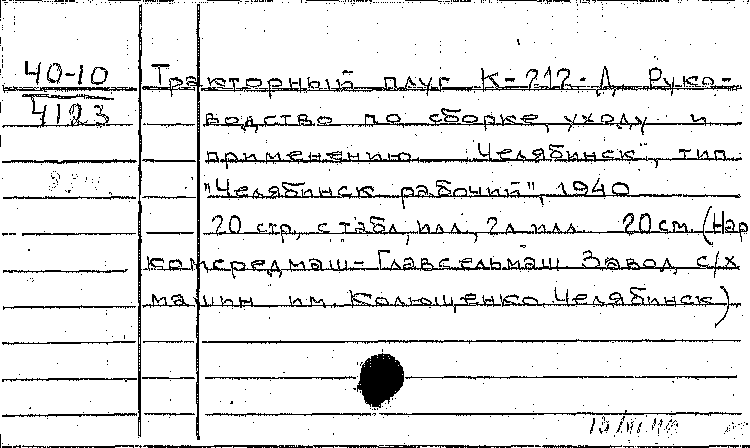 40-10
4123
Тракторный плуг К-212-Д. Руко-
водство по сборке, уходу и
применению. Челябинск, тип.
"Челябинск рабочий", 1940
20 стр, с табл, илл, 2л илл 20 см. (Нар
комсредмаш-Главсельмаш Завод с/х
машин им. Колющенко Челябинск)